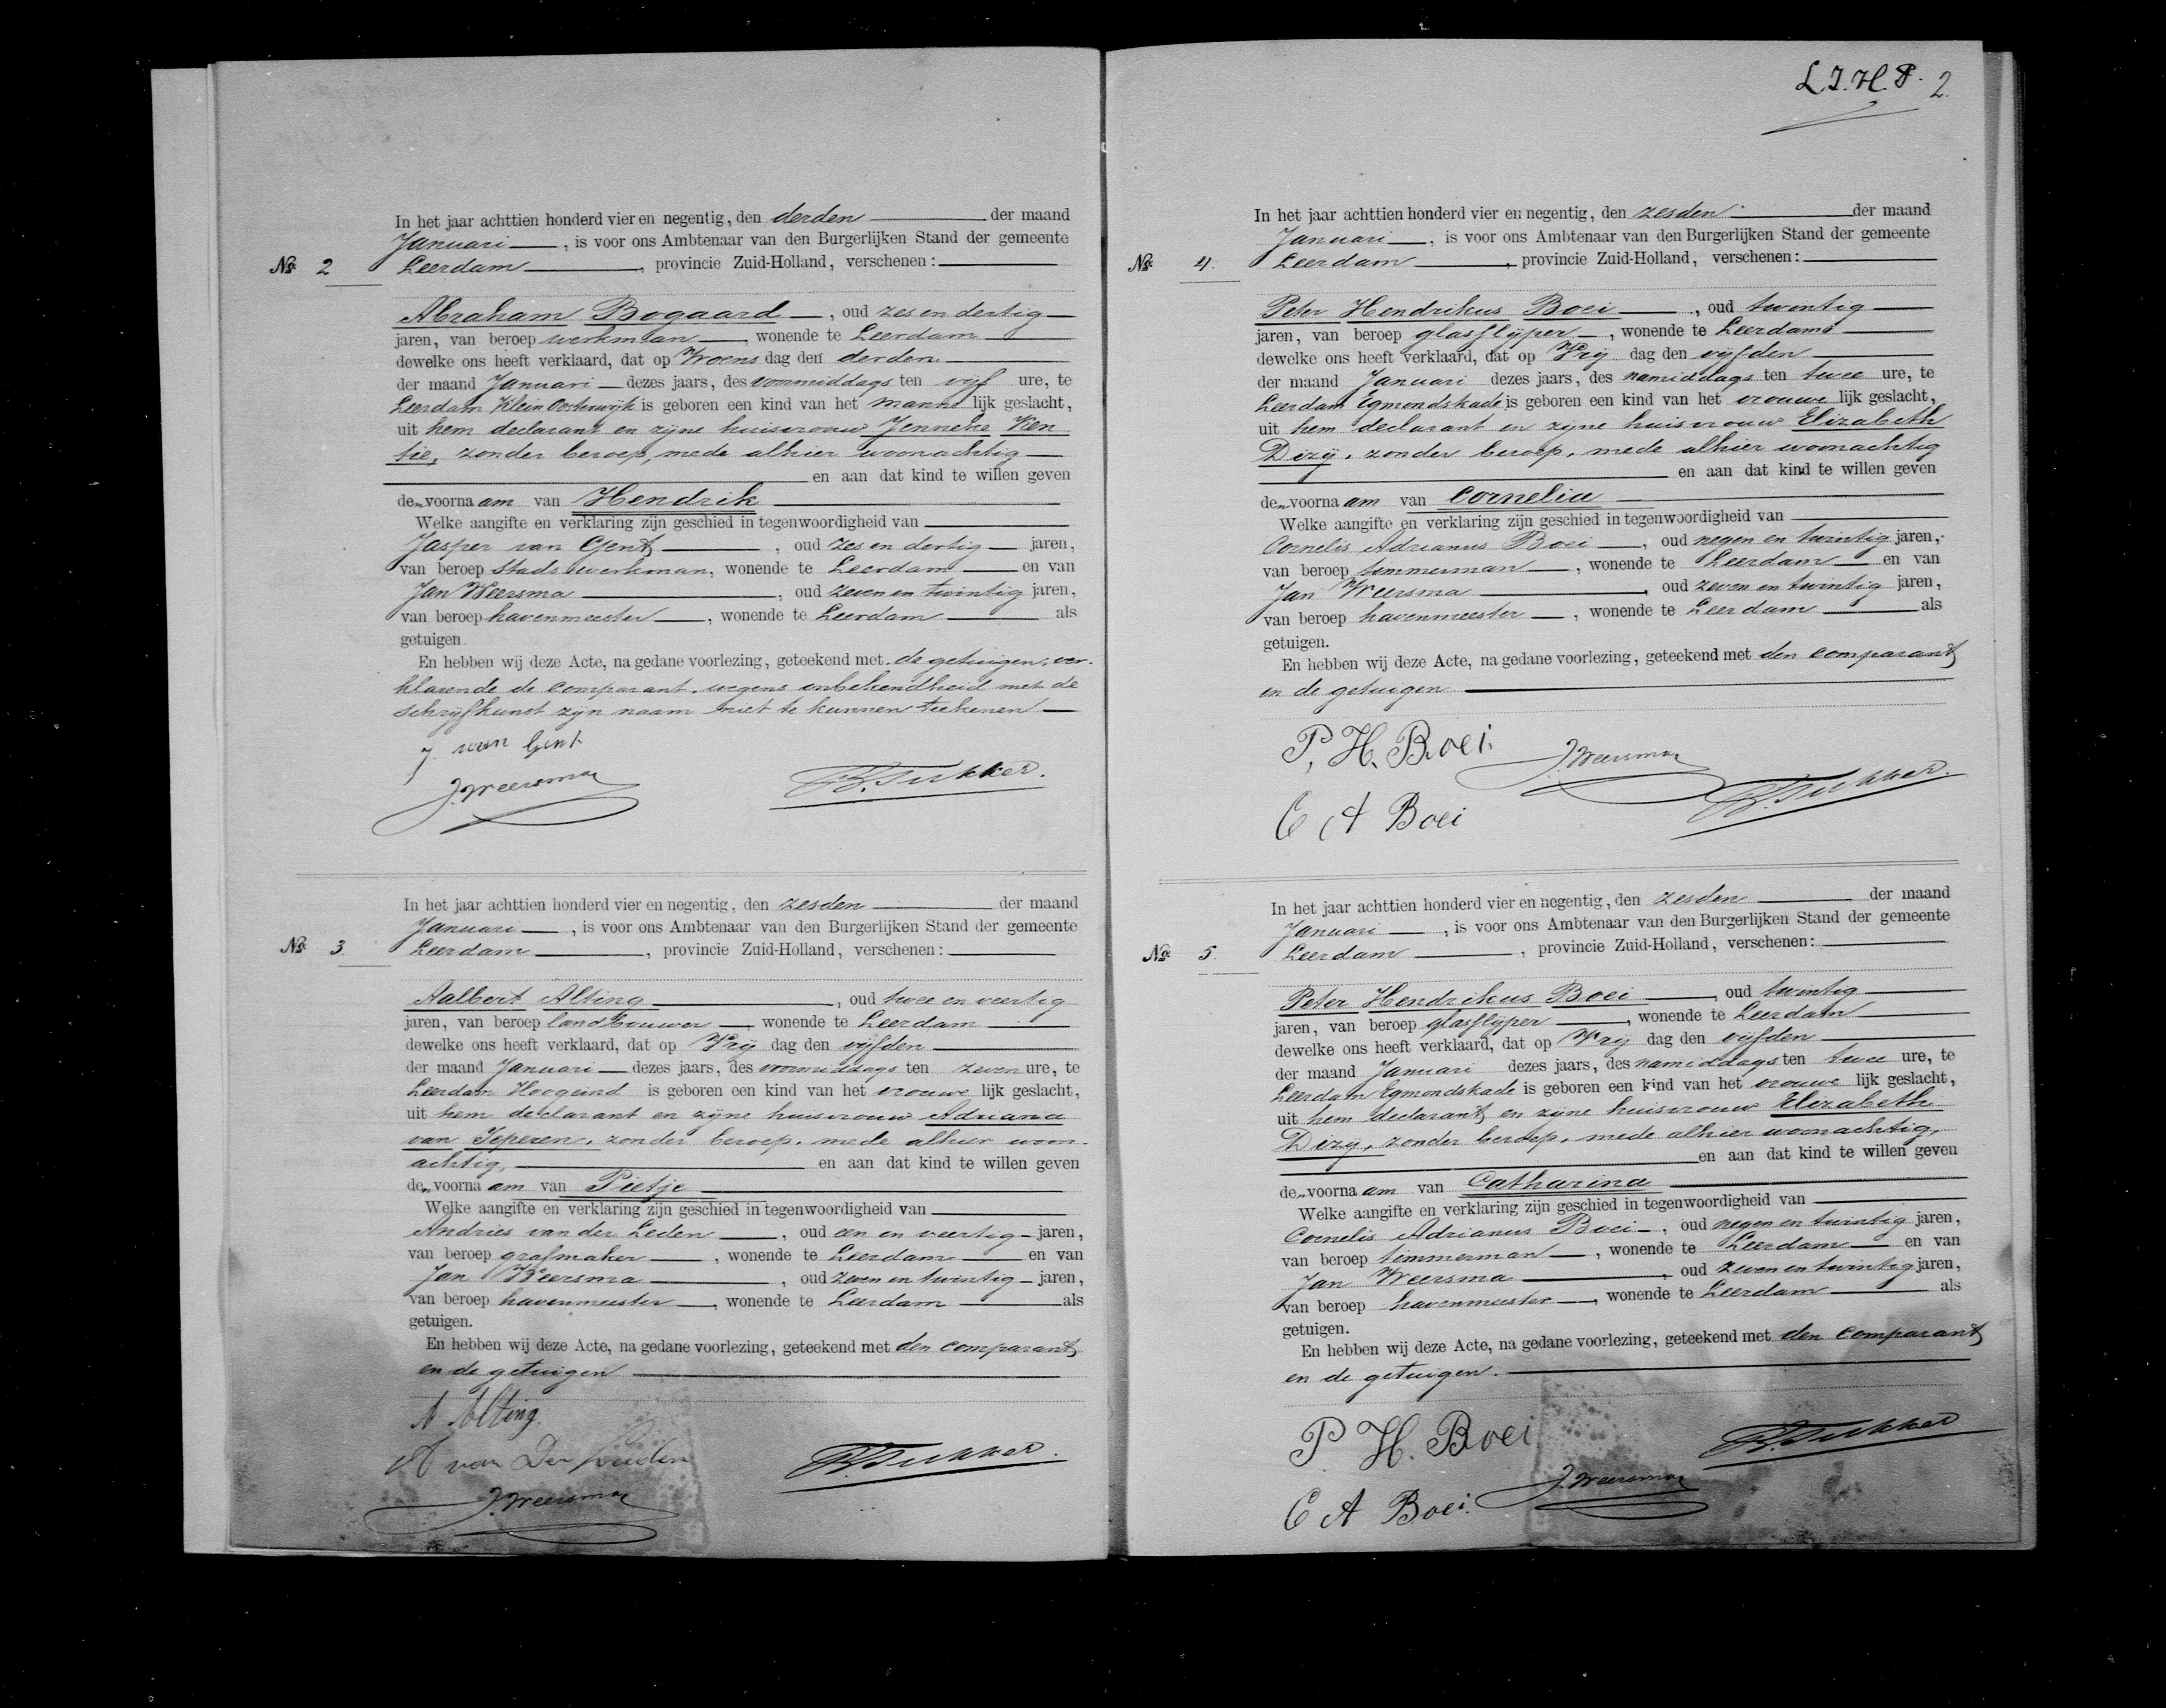 In het jaar achttien honderd vier en negentig, den derden der maand
Januari, is voor ons Ambtenaar van den Burgerlijken Stand der gemeente
No. 2 Leerdam, provincie Zuid-Holland, verschenen:
Abraham Bogaard, oud zes en dertig
jaren, van beroep werkman, wonende te Leerdam
dewelke ons heeft verklaard, dat op Woens dag den derden
der maand Januari dezes jaars, des voormiddags ten vijf ure, te
Leerdam Klein Oosterwijk is geboren een kind van het manne lijk geslacht,
uit hem declarant en zijne huisvrouw Jenneke Ken
tie, zonder beroep, mede alhier woonachtig
en aan dat kind te willen geven
den voorna am van Hendrik
Welke aangifte en verklaring zijn geschied in tegenwoordigheid van
Jasper van Gent, oud zes en dertig jaren,
van beroep Stads werkman, wonende te Leerdam en van
Jan Weersma, oud zeven en twintig jaren,
van beroep havenmeester, wonende te Leerdam als
getuigen.
En hebben wij deze Acte, na gedane voorlezing, geteekend met de getuigen, ver-
klarende de comparant wegens onbekendheid met de
schrijfkunst zijn naam niet te kunnen teekenen
J. van Gent
J. Weersma
Tukker.
In het jaar achttien honderd vier en negentig, den zesden der maand
Januari, is voor ons Ambtenaar van den Burgerlijken Stand der gemeente
No. 3. Leerdam, provincie Zuid-Holland, verschenen:
Aalbert Alting, oud twee en veertig
jaren, van beroep landbouwer wonende te Leerdam
dewelke ons heeft verklaard, dat op Vrij dag den vijfden
der maand Januari dezes jaars, des voormiddags ten zeven ure, te
Leerdam Hoogeind is geboren een kind van het vrouwe lijk geslacht,
uit hem declarant en zijne huisvrouw Adriana
van Ieperen, zonder beroep, mede alhier woon-
achtig, en aan dat kind te willen geven
den voorna am van Pietje
Welke aangifte en verklaring zijn geschied in tegenwoordigheid van
Andries van der Leden, oud een en veertig jaren,
van beroep grafmaker, wonende te Leerdam en van
Jan Weersma, oud zeven en twintig jaren,
van beroep havenmeester, wonende te Leerdam als
getuigen.
En hebben wij deze Acte, na gedane voorlezing, geteekend met den comparant
en de getuigen
A Alting.
A van Der Leeden
J. Weersma
Tukker.
L.J.H.P. 2.
In het jaar achttien honderd vier en negentig, den zesden der maand
Januari, is voor ons Ambtenaar van den Burgerlijken Stand der gemeente
No. 4. Leerdam, provincie Zuid-Holland, verschenen:
Peter Hendrikus Boei, oud twintig
jaren, van beroep glasslijper, wonende te Leerdam
dewelke ons heeft verklaard, dat op Vrij dag den vijfden
der maand Januari dezes jaars, des namiddags ten twee ure, te
Leerdam Egmondskade is geboren een kind van het vrouwe lijk geslacht,
uit hem declarant en zijne huisvrouw Elizabeth
Dizij, zonder beroep, mede alhier woonachtig
en aan dat kind te willen geven
den voorna am van Cornelia
Welke aangifte en verklaring zijn geschied in tegenwoordigheid van
Cornelis Adrianus Boei, oud negen en twintig jaren,
van beroep timmerman, wonende te Leerdam en van
Jan Weersma, oud zeven en twintig jaren,
van beroep havenmeester, wonende te Leerdam als
getuigen.
En hebben wij deze Acte, na gedane voorlezing, geteekend met den comparant
en de getuigen
P. H. Boei.
J. Weersma
Tukker.
C A Boei
In het jaar achttien honderd vier en negentig, den zesden der maand
Januari, is voor ons Ambtenaar van den Burgerlijken Stand der gemeente
No. 5. Leerdam, provincie Zuid-Holland, verschenen:
Peter Hendrikus Boei, oud twintig
jaren, van beroep glasslijper, wonende te Leerdam
dewelke ons heeft verklaard, dat op Vrij dag den vijfden
der maand Januari dezes jaars, des namiddags ten twee ure, te
Leerdam Egmondskade is geboren een kind van het vrouwe lijk geslacht,
uit hem declarant en zijne huisvrouw Elizabeth
Dizij, zonder beroep, mede alhier woonachtig,
en aan dat kind te willen geven
den voorna am van Catharina
Welke aangifte en verklaring zijn geschied in tegenwoordigheid van
Cornelis Adrianus Boei, oud negen en twintig jaren,
van beroep timmerman, wonende te Leerdam en van
Jan Weersma, oud zeven en twintig jaren,
van beroep havenmeester, wonende te Leerdam als
getuigen.
En hebben wij deze Acte, na gedane voorlezing, geteekend met den comparant
en de getuigen.
P. H. Boei
Tukker
J. Weersma
C A Boei.